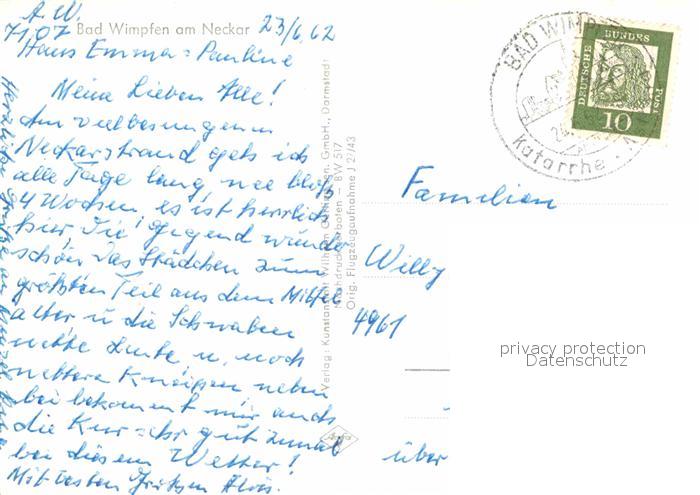 A. W.
7107 Bad Wimpfen am Neckar 23/6.62
Haus Emma-Pauline
Meine Lieben Alle!
Am vielbesungenen
Neckarstrand gehs ich
alle Tage lang, nee bloß
4 Wochen, es ist herrlich
hier. Die Gegend wunder
schön das Städchen zum
größten Teil aus dem Mittel
alter u die Schwaben
nette Leute u. noch
nettere Kneipen neben
bei bekommt mir auch
die Kur sehr gut zumal
bei diesem Wetter!
Mit besten Grüßen Alois.
Herzliche Grüße
Verlag: Kunstanstalt Wilhelm GmbH., Darmstadt
Nachdruck verboten – BW 517
Orig. Flugzeugaufnahme J 2/143
BAD WIMPFEN
Katarrhe
DEUTSCHE BUNDES POST
10
Familien
Willy
4961
über
privacy protection
Datenschutz